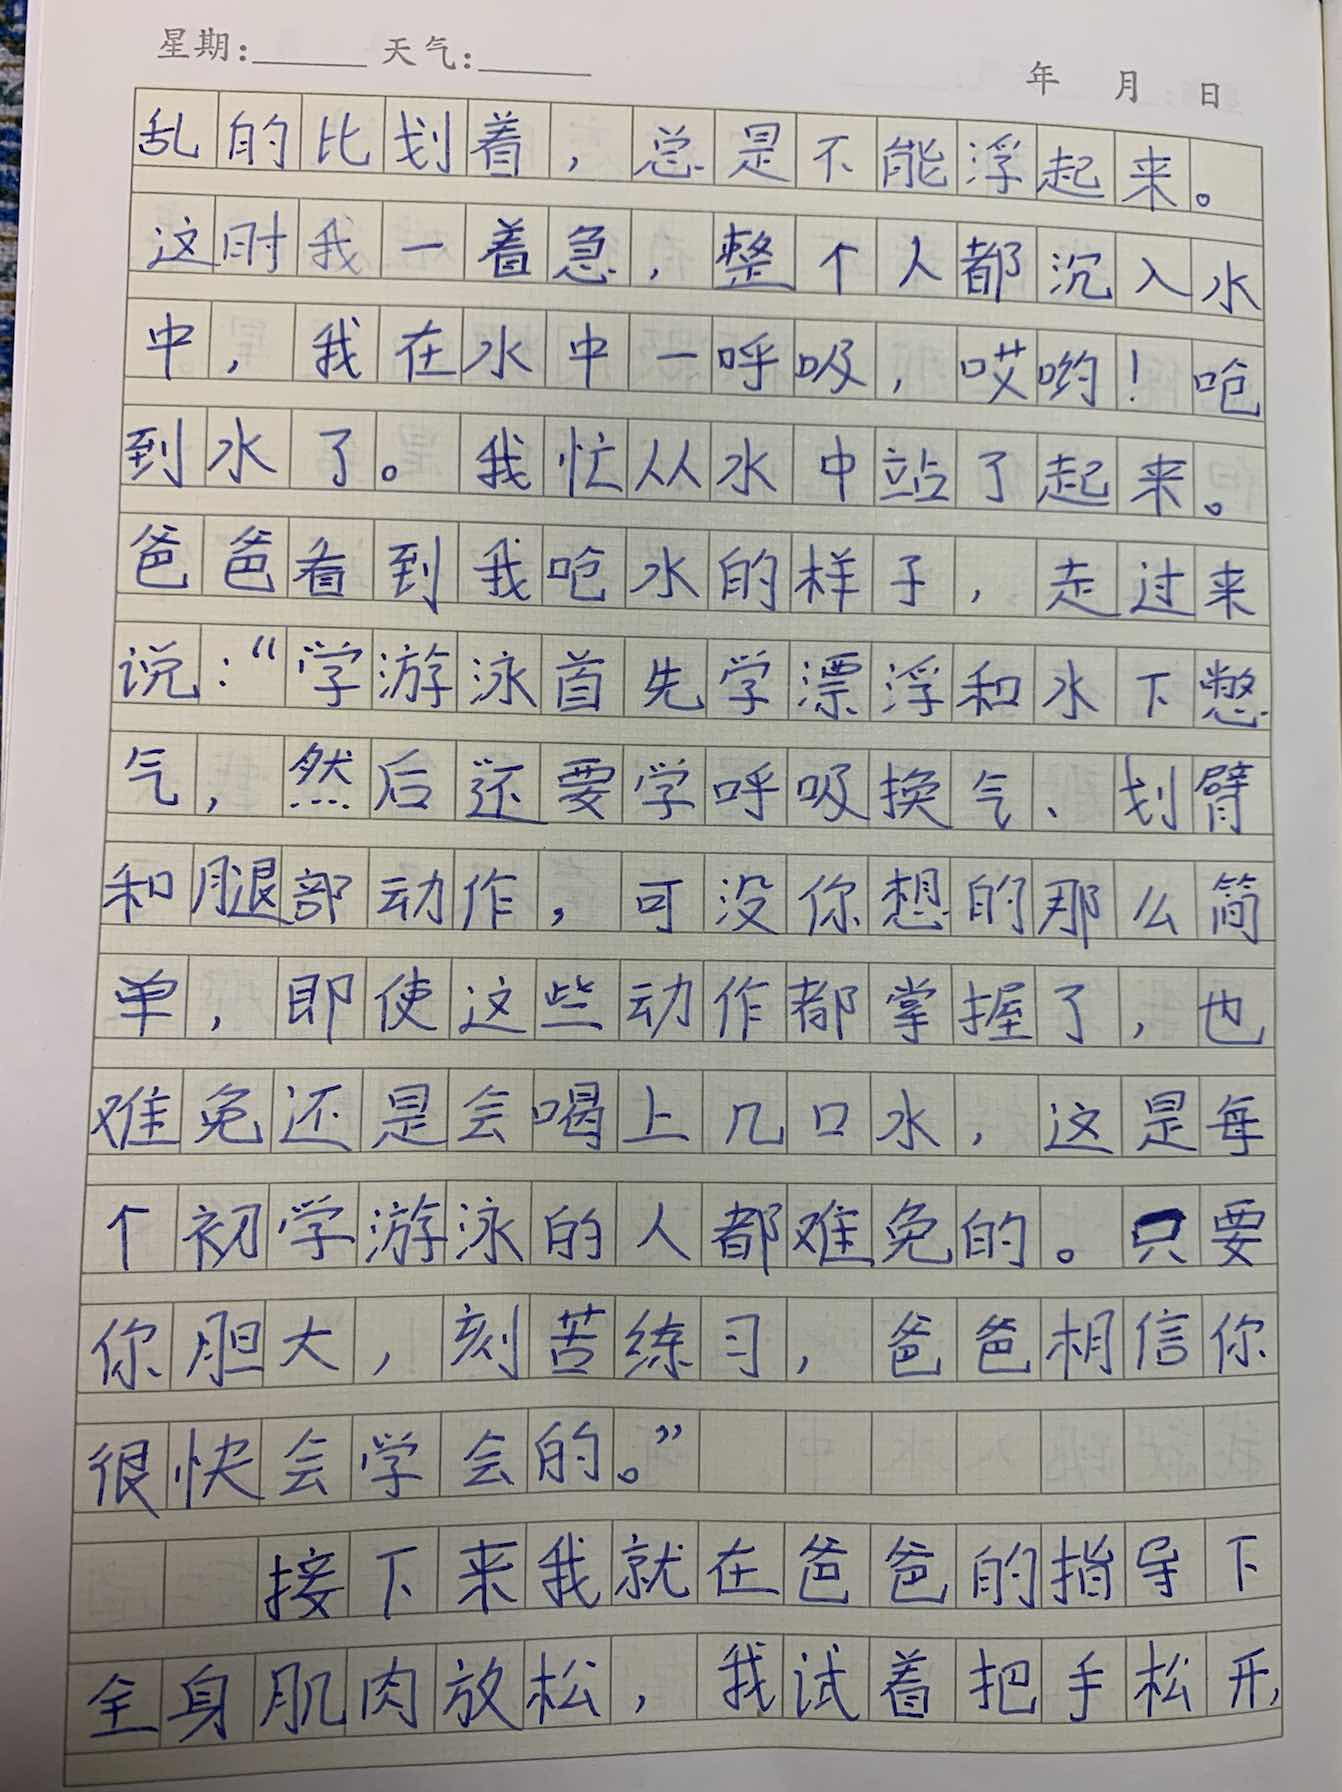 星期:______ 天气:______ 年 月 日
乱的比划着，总是不能浮起来。
这时我一着急，整个人都沉入水
中，我在水中一呼吸，哎哟！呛
到水了。我忙从水中站了起来。
爸爸看到我呛水的样子，走过来
说：“学游泳首先学漂浮和水下憋
气，然后还要学呼吸换气、划臂
和腿部动作，可没你想的那么简
单，即使这些动作都掌握了，也
难免还是会喝上几口水，这是每
个初学游泳的人都难免的。只要
你胆大，刻苦练习，爸爸相信你
很快会学会的。”
接下来我就在爸爸的指导下
全身肌肉放松，我试着把手松开，